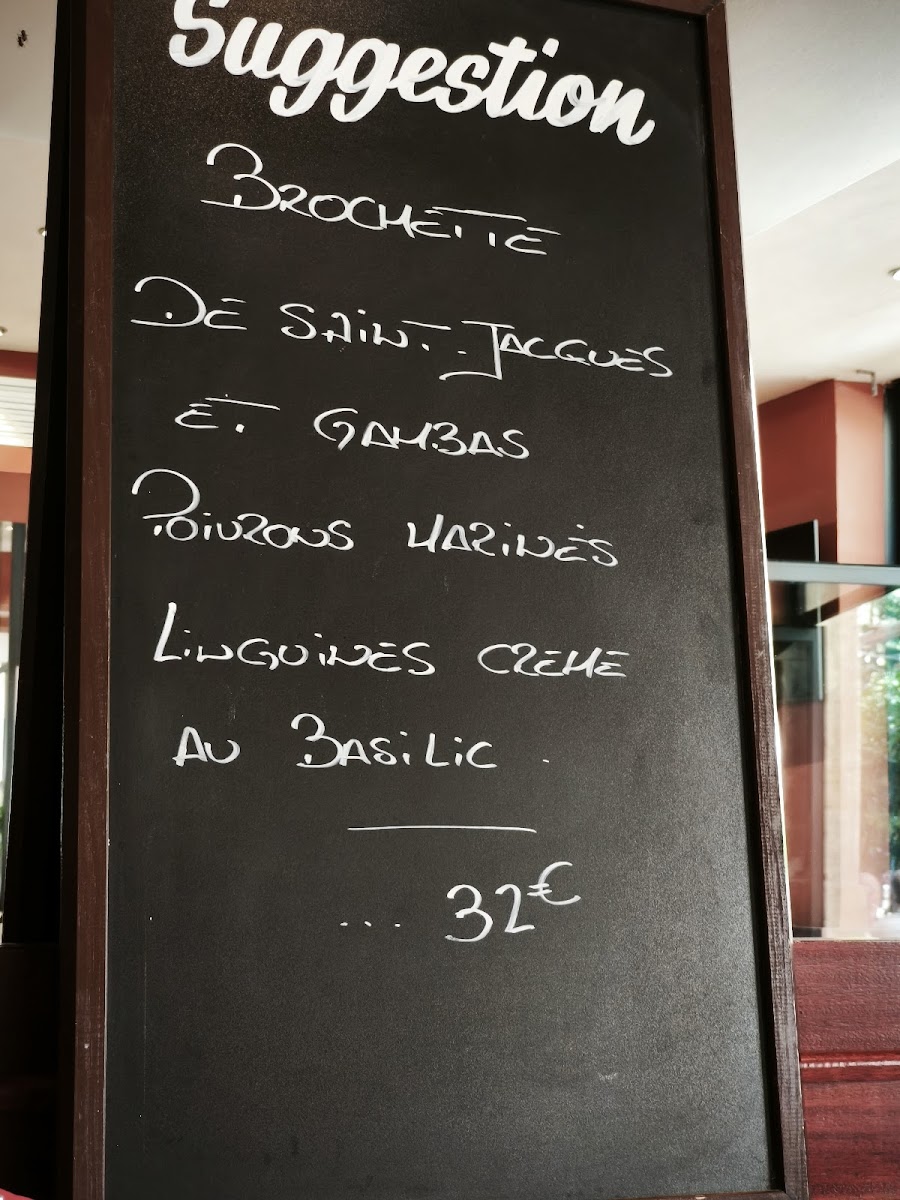 Suggestion
BROCHETTE
DE SAINT-JACQUES
ET GAMBAS
POIVRONS MARINÉS
LINGUINES CREME
AU BASILIC.
... 32€